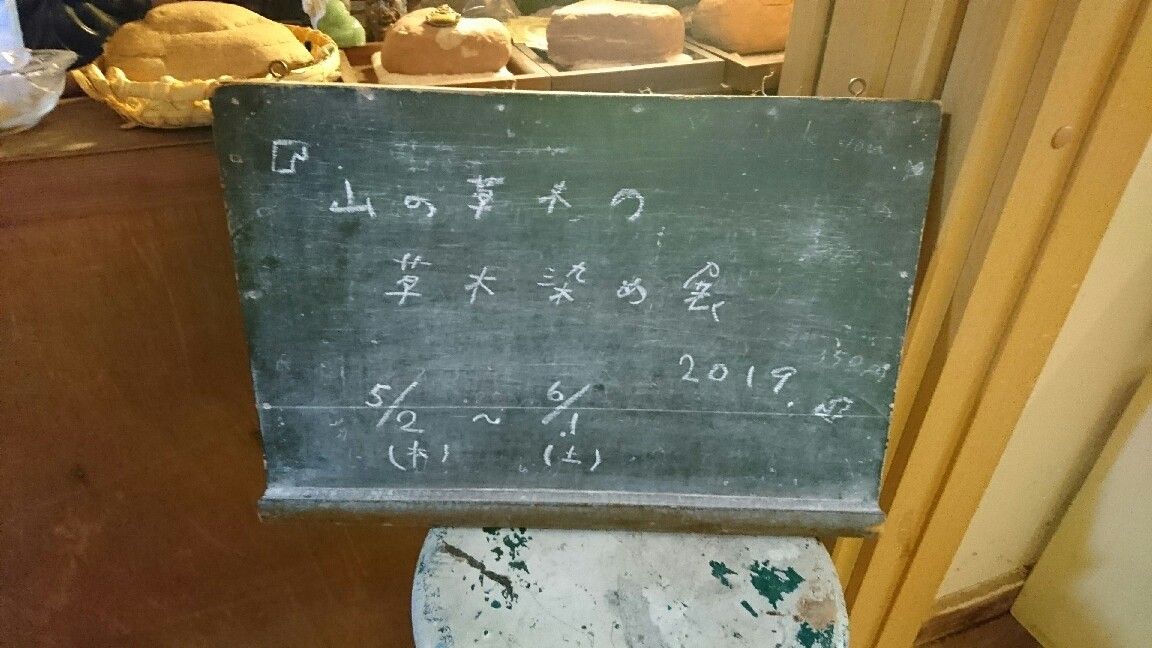 『
山の草木の
草木染め展
2019.
5/2 ~ 6/1
(木) (土)